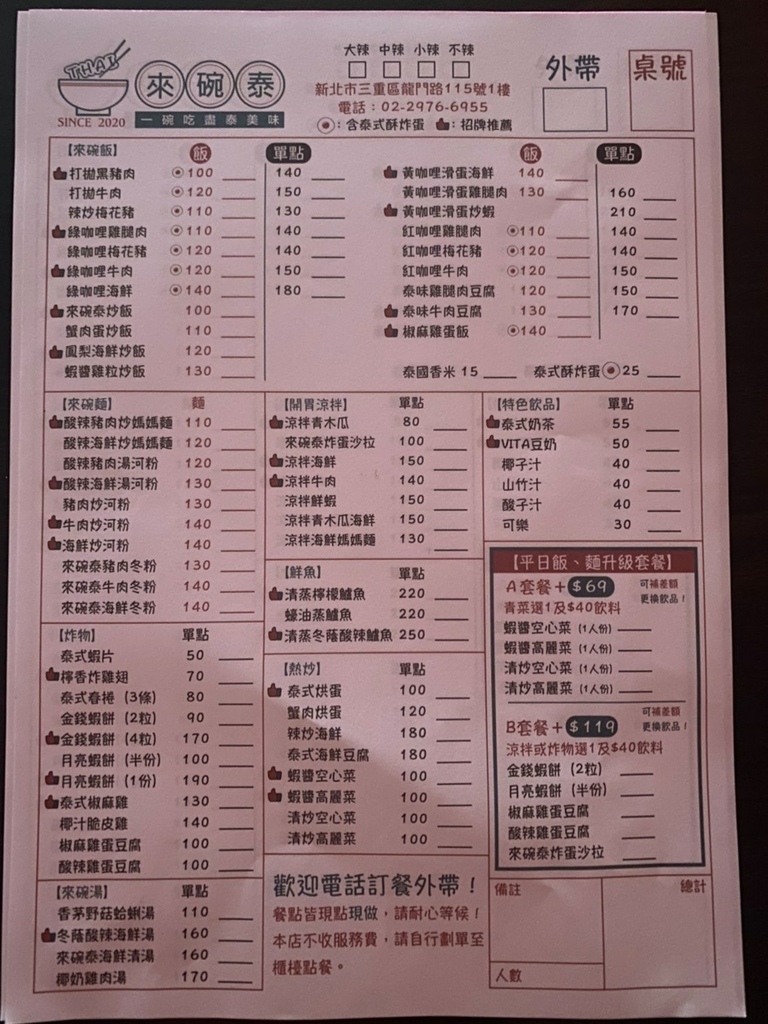 THAI
SINCE 2020
來碗泰
一碗吃盡泰美味
大辣 中辣 小辣 不辣
新北市三重區龍門路115號1樓
電話：02-2976-6955
：含泰式酥炸蛋 ：招牌推薦
外帶
桌號
【來碗飯】 飯 單點
打拋黑豬肉 100 140
打拋牛肉 120 150
辣炒梅花豬 110 130
綠咖哩雞腿肉 110 140
綠咖哩梅花豬 120 140
綠咖哩牛肉 120 150
綠咖哩海鮮 140 180
來碗泰炒飯 100
蟹肉蛋炒飯 110
鳳梨海鮮炒飯 120
蝦醬雞粒炒飯 130
飯 單點
黃咖哩滑蛋海鮮 140
黃咖哩滑蛋雞腿肉 130 160
黃咖哩滑蛋炒蝦 210
紅咖哩雞腿肉 110 140
紅咖哩梅花豬 120 140
紅咖哩牛肉 120 150
泰味雞腿肉豆腐 120 150
泰味牛肉豆腐 130 170
椒麻雞蛋飯 140
泰國香米 15 泰式酥炸蛋 25
【來碗麵】 麵
酸辣豬肉炒媽媽麵 110
酸辣海鮮炒媽媽麵 120
酸辣豬肉湯河粉 120
酸辣海鮮湯河粉 130
豬肉炒河粉 130
牛肉炒河粉 140
海鮮炒河粉 140
來碗泰豬肉冬粉 130
來碗泰牛肉冬粉 140
來碗泰海鮮冬粉 140
【炸物】 單點
泰式蝦片 50
檸香炸雞翅 70
泰式春捲（3條） 80
金錢蝦餅（2粒） 90
金錢蝦餅（4粒） 170
月亮蝦餅（半份） 100
月亮蝦餅（1份） 190
泰式椒麻雞 130
椰汁脆皮雞 140
椒麻雞蛋豆腐 100
酸辣雞蛋豆腐 100
【來碗湯】 單點
香茅野菇蛤蜊湯 110
冬蔭酸辣海鮮湯 160
來碗泰海鮮清湯 160
椰奶雞肉湯 170
【開胃涼拌】 單點
涼拌青木瓜 80
來碗泰炸蛋沙拉 100
涼拌海鮮 150
涼拌牛肉 140
涼拌鮮蝦 150
涼拌青木瓜海鮮 150
涼拌海鮮媽媽麵 130
【鮮魚】 單點
清蒸檸檬鱸魚 220
蠔油蒸鱸魚 220
清蒸冬蔭酸辣鱸魚 250
【熱炒】 單點
泰式烘蛋 100
蟹肉烘蛋 120
辣炒海鮮 180
泰式海鮮豆腐 180
蝦醬空心菜 100
蝦醬高麗菜 100
清炒空心菜 100
清炒高麗菜 100
歡迎電話訂餐外帶！
餐點皆現點現做，請耐心等候！
本店不收服務費，請自行劃單至
櫃檯點餐。
【特色飲品】 單點
泰式奶茶 55
VITA豆奶 50
椰子汁 40
山竹汁 40
酸子汁 40
可樂 30
【平日飯、麵升級套餐】
A套餐+$69 可補差額
更換飲品！
青菜選1及$40飲料
蝦醬空心菜（1人份）
蝦醬高麗菜（1人份）
清炒空心菜（1人份）
清炒高麗菜（1人份）
B套餐+$119 可補差額
更換飲品！
涼拌或炸物選1及$40飲料
金錢蝦餅（2粒）
月亮蝦餅（半份）
椒麻雞蛋豆腐
酸辣雞蛋豆腐
來碗泰炸蛋沙拉
備註
總計
人數